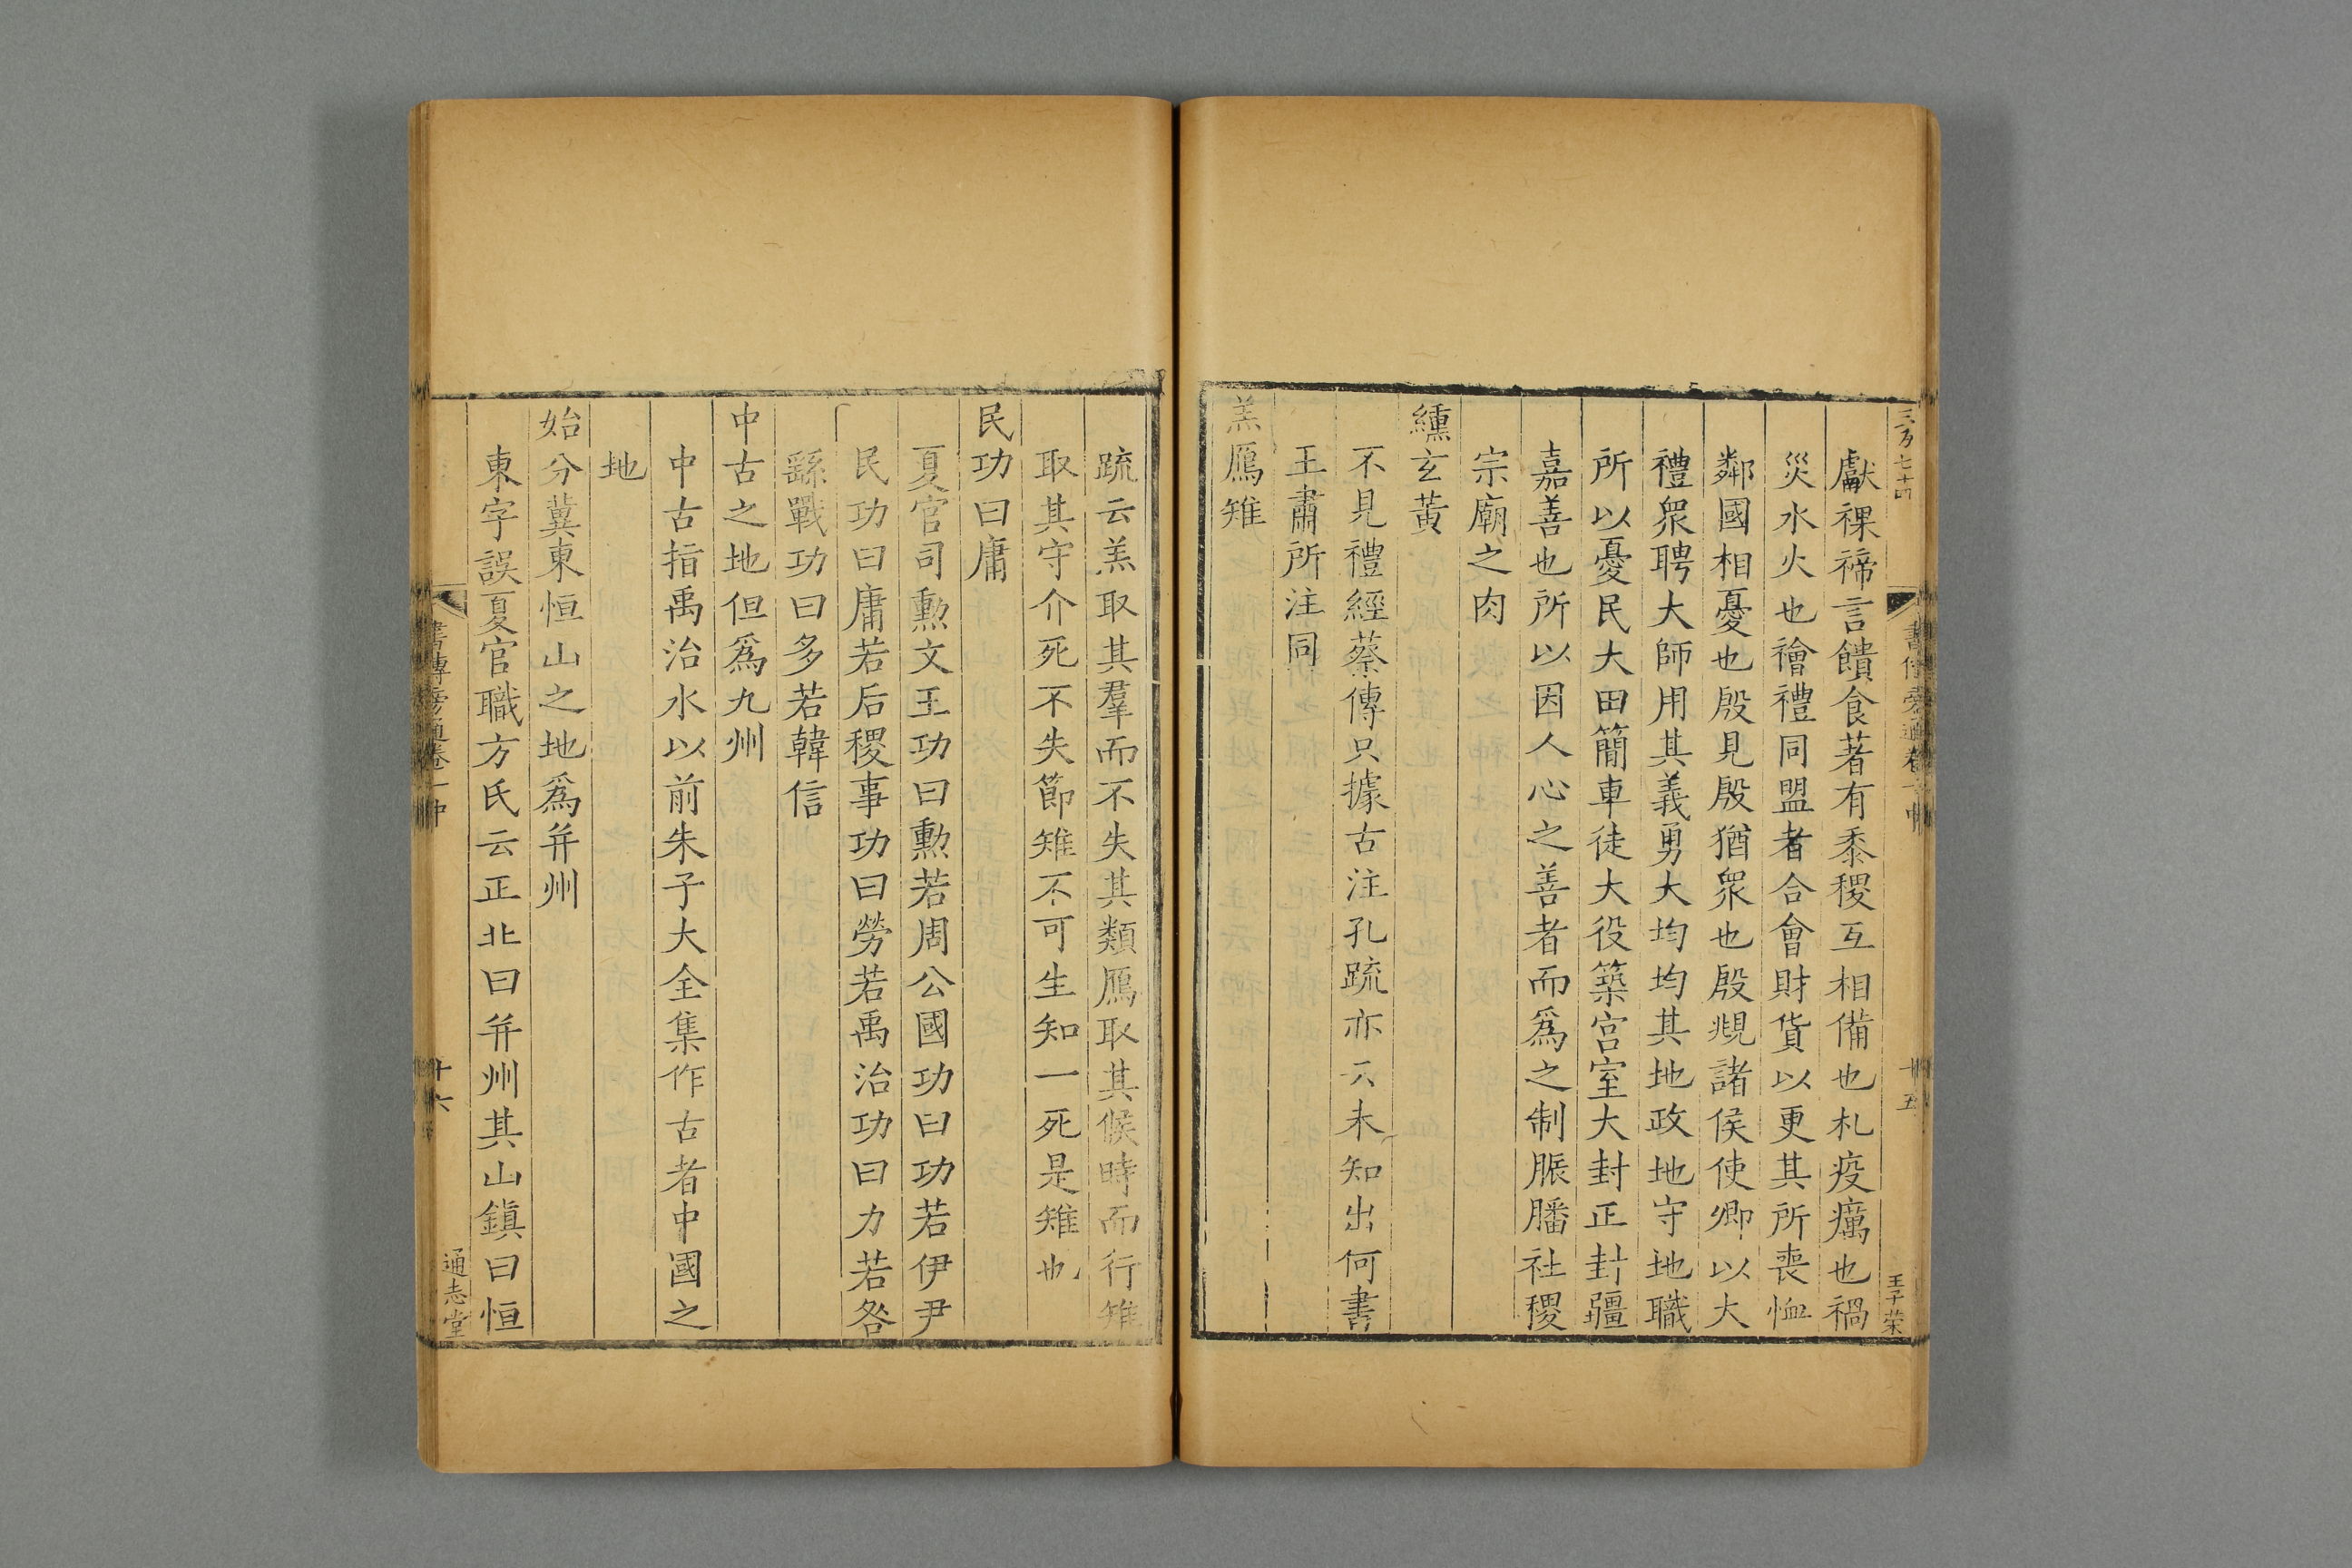 三百七十四
書傳旁通卷一中
十五
王子榮
獻祼禘言饋食著有黍稷互相備也札疫癘也禍
災水火也禬禮同盟者合會財貨以更其所喪恤
鄰國相憂也殷見殷猶眾也殷覜諸侯使卿以大
禮眾聘大師用其義勇大均均其地政地守地職
所以憂民大田簡車徒大役築宮室大封正封疆
嘉善也所以因人心之善者而爲之制脤膰社稷
宗廟之肉
纁玄黃
不見禮經蔡傳只據古注孔疏亦云未知出何書
王肅所注同
羔鴈雉
疏云羔取其羣而不失其類鴈取其候時而行雉
取其守介死不失節雉不可生知一死是雉也
民功曰庸
夏官司勲文王功曰勲若周公國功曰功若伊尹
民功曰庸若后稷事功曰勞若禹治功曰力若咎
繇戰功曰多若韓信
中古之地但爲九州
中古指禹治水以前朱子大全集作古者中國之
地
始分冀東恒山之地爲并州
東字誤夏官職方氏云正北曰并州其山鎮曰恒
書傳旁通卷一中
十六
通志堂